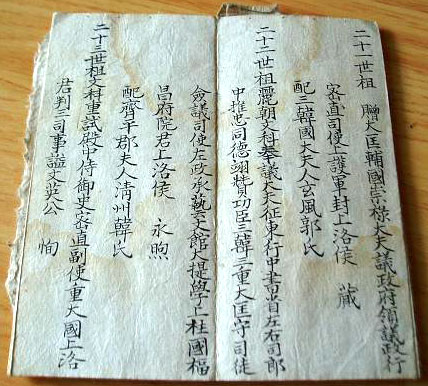 二十一世祖 贈大匡輔國崇祿大夫議政府領議政行
密直司使上護軍封上洛侯 蕆
配三韓國大夫人玄風郭氏
二十二世祖麗朝文科奉議大夫征東行中書省左右司郎
中推忠同德翊贊功臣三韓三重大匡守司徒
僉議司使左政丞藝文館大提學上柱國福
昌府院君上洛侯 永煦
配齊平郡夫人清州韓氏
二十三世祖文科重試殿中侍御史密直副使重大國上洛
君判三司事諡文英公 恂